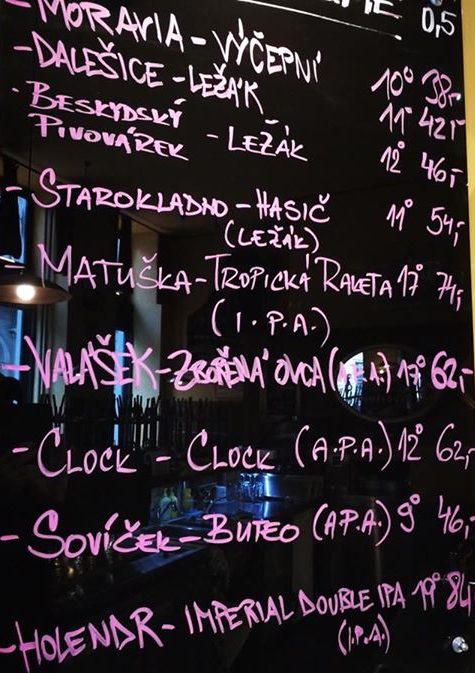 0,5
- MORAVIA - VÝČEPNÍ 10° 38,-
- DALEŠICE - LEŽÁK 11° 42,-
- BESKYDSKÝ
PIVOVÁREK - LEŽÁK 12° 46,-
- STAROKLADNO - HASIČ 11° 54,-
(LEŽÁK)
- MATUŠKA - TROPICKÁ RAKETA 17° 74,-
(I.P.A.)
- VALÁŠEK - ZBOŘENÁ OVCA 17° 62,-
- CLOCK - CLOCK (A.P.A.) 12° 62,-
- SOVÍČEK - BUTEO (A.P.A.) 9° 46,-
- HOLENDR - IMPERIAL DOUBLE IPA 19° 84,-
(I.P.A.)